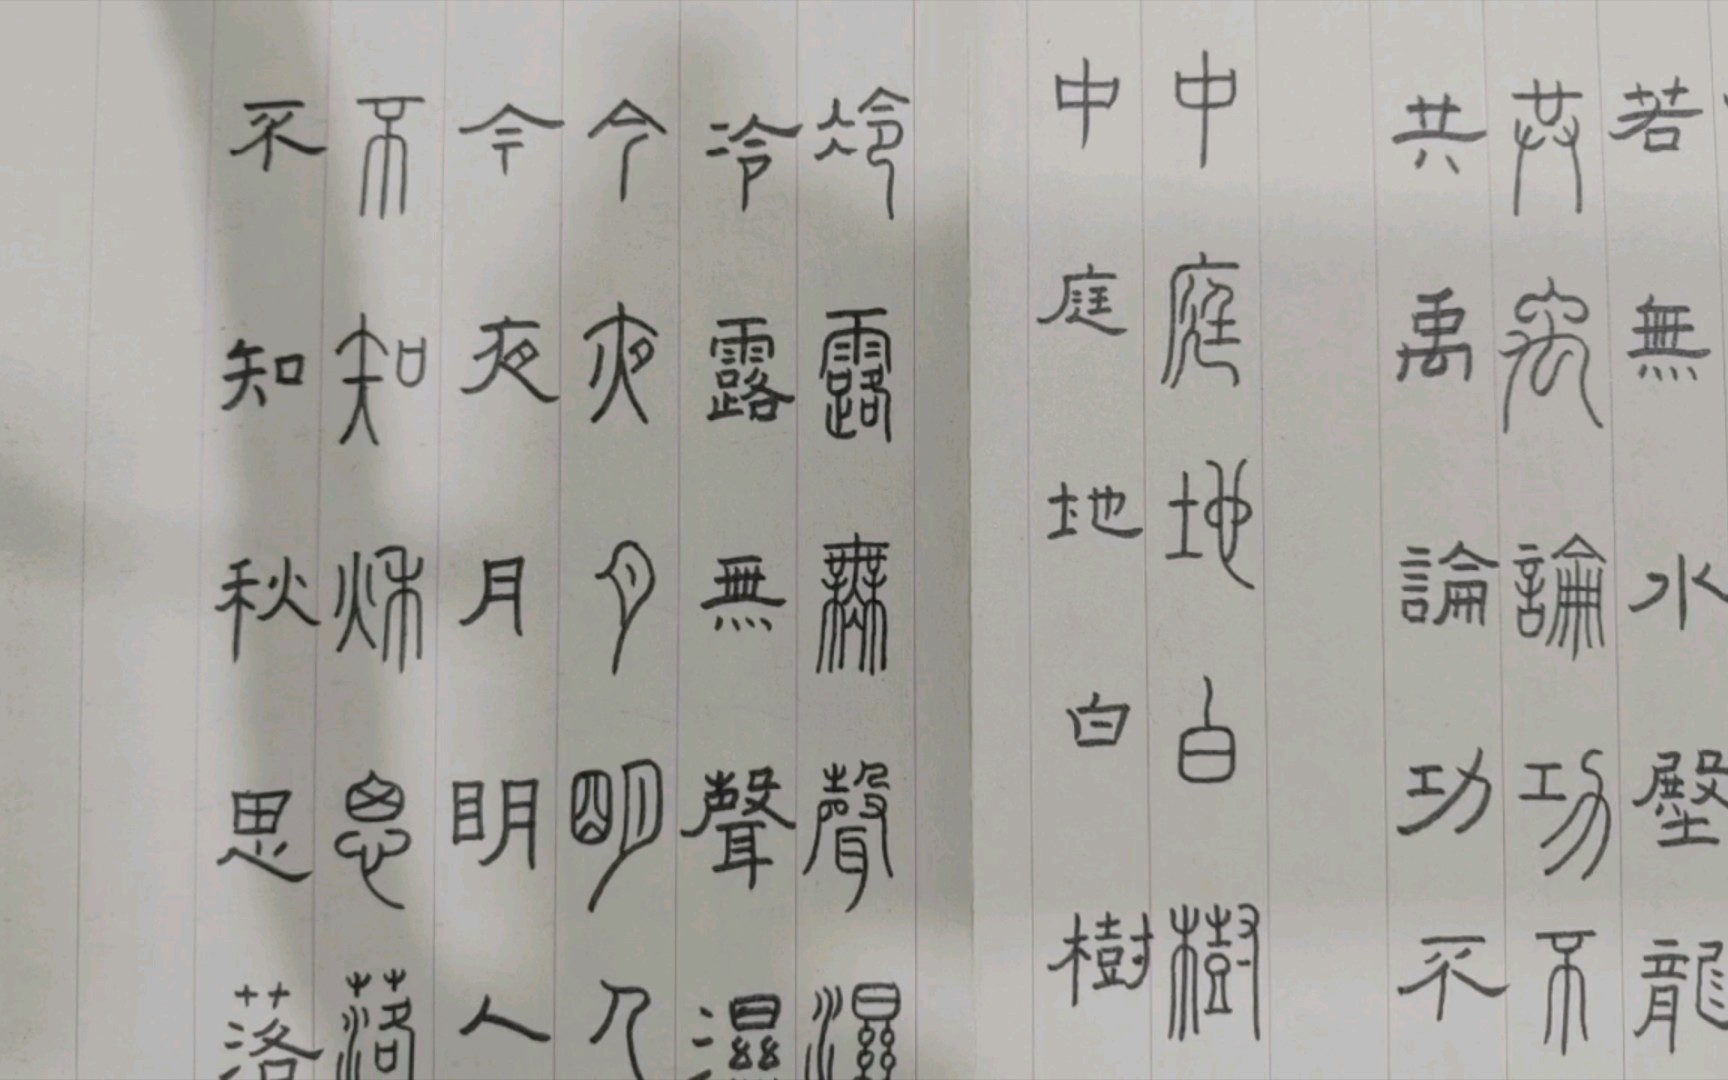 若無水壂龍
共禹論功不
共禹論功不
中庭地白樹
中庭地白樹
冷露無聲濕
冷露無聲濕
今夜月明人
今夜月明人
不知秋思落
不知秋思落